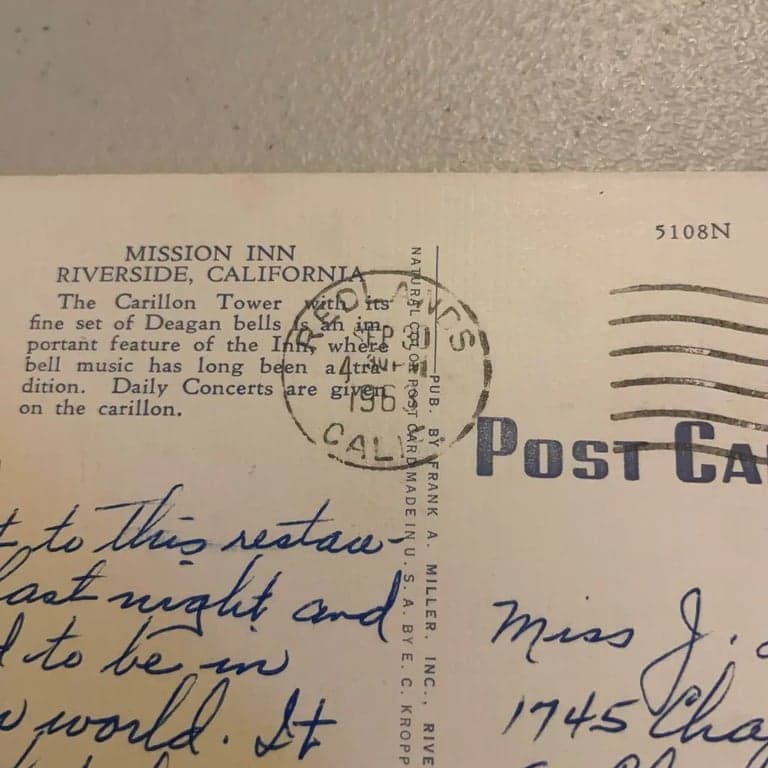 5108N
MISSION INN
RIVERSIDE, CALIFORNIA
The Carillon Tower with its
fine set of Deagan bells is an im-
portant feature of the Inn, where
bell music has long been a tra-
dition. Daily Concerts are given
on the carillon.
REDLANDS
SEP
196
CALIF.
PUB. BY FRANK A. MILLER, INC., RIVE
NATURAL COLOR POST CARD MADE IN U. S. A. BY E. C. KROPP
POST CA
to this restau-
last night and
to be in
world. It
Miss J.
1745 Cha